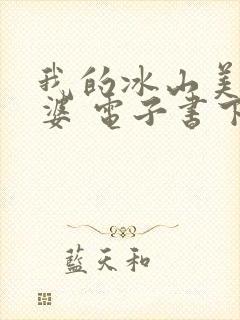 我的冰山美
婆 电子书下
藍天和